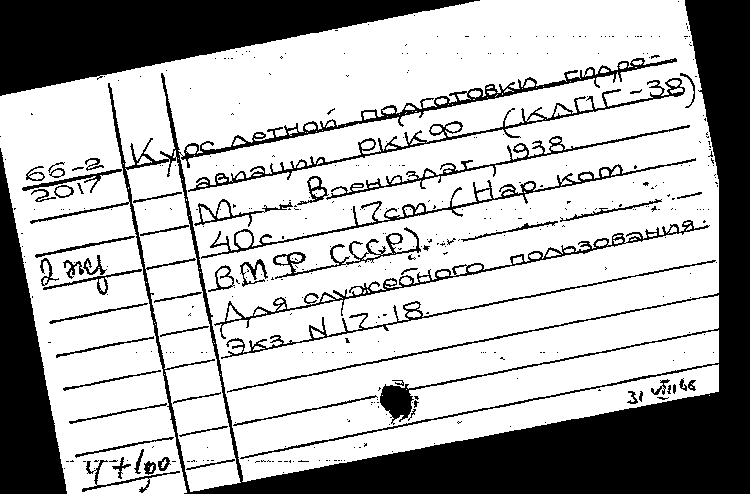 Курс летной подготовки гидро-
авиации РККФ (КЛПГ-38)
М., Воениздат, 1938.
40с. 17см. (Нар. ком.
ВМФ СССР).
Для служебного пользования.
Экз. N 17; 18.
66-2
2017
2 экз
31 VIII 46